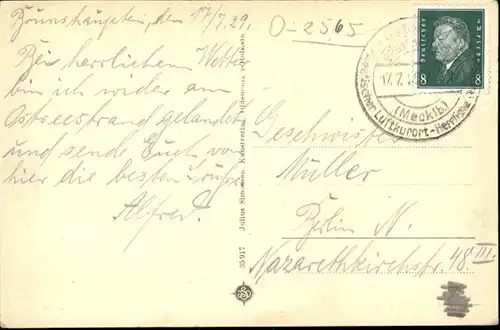 Brunshaupten, den 17/7.29.
Bei herrlichem Wetter
bin ich wieder am
Ostseestrand gelandet
und sende Euch von
hier die besten Grüße
Alfred.
O-2565
Deutsches Reich
8 8
17.7.
(Mecklb)
Luftkurort-
Geschwister
Müller
Berlin N.
Nazarethkirchstr. 48 III.
Julius Simonsen, Kunstverlag, Oldenburg i. Holstein
35917